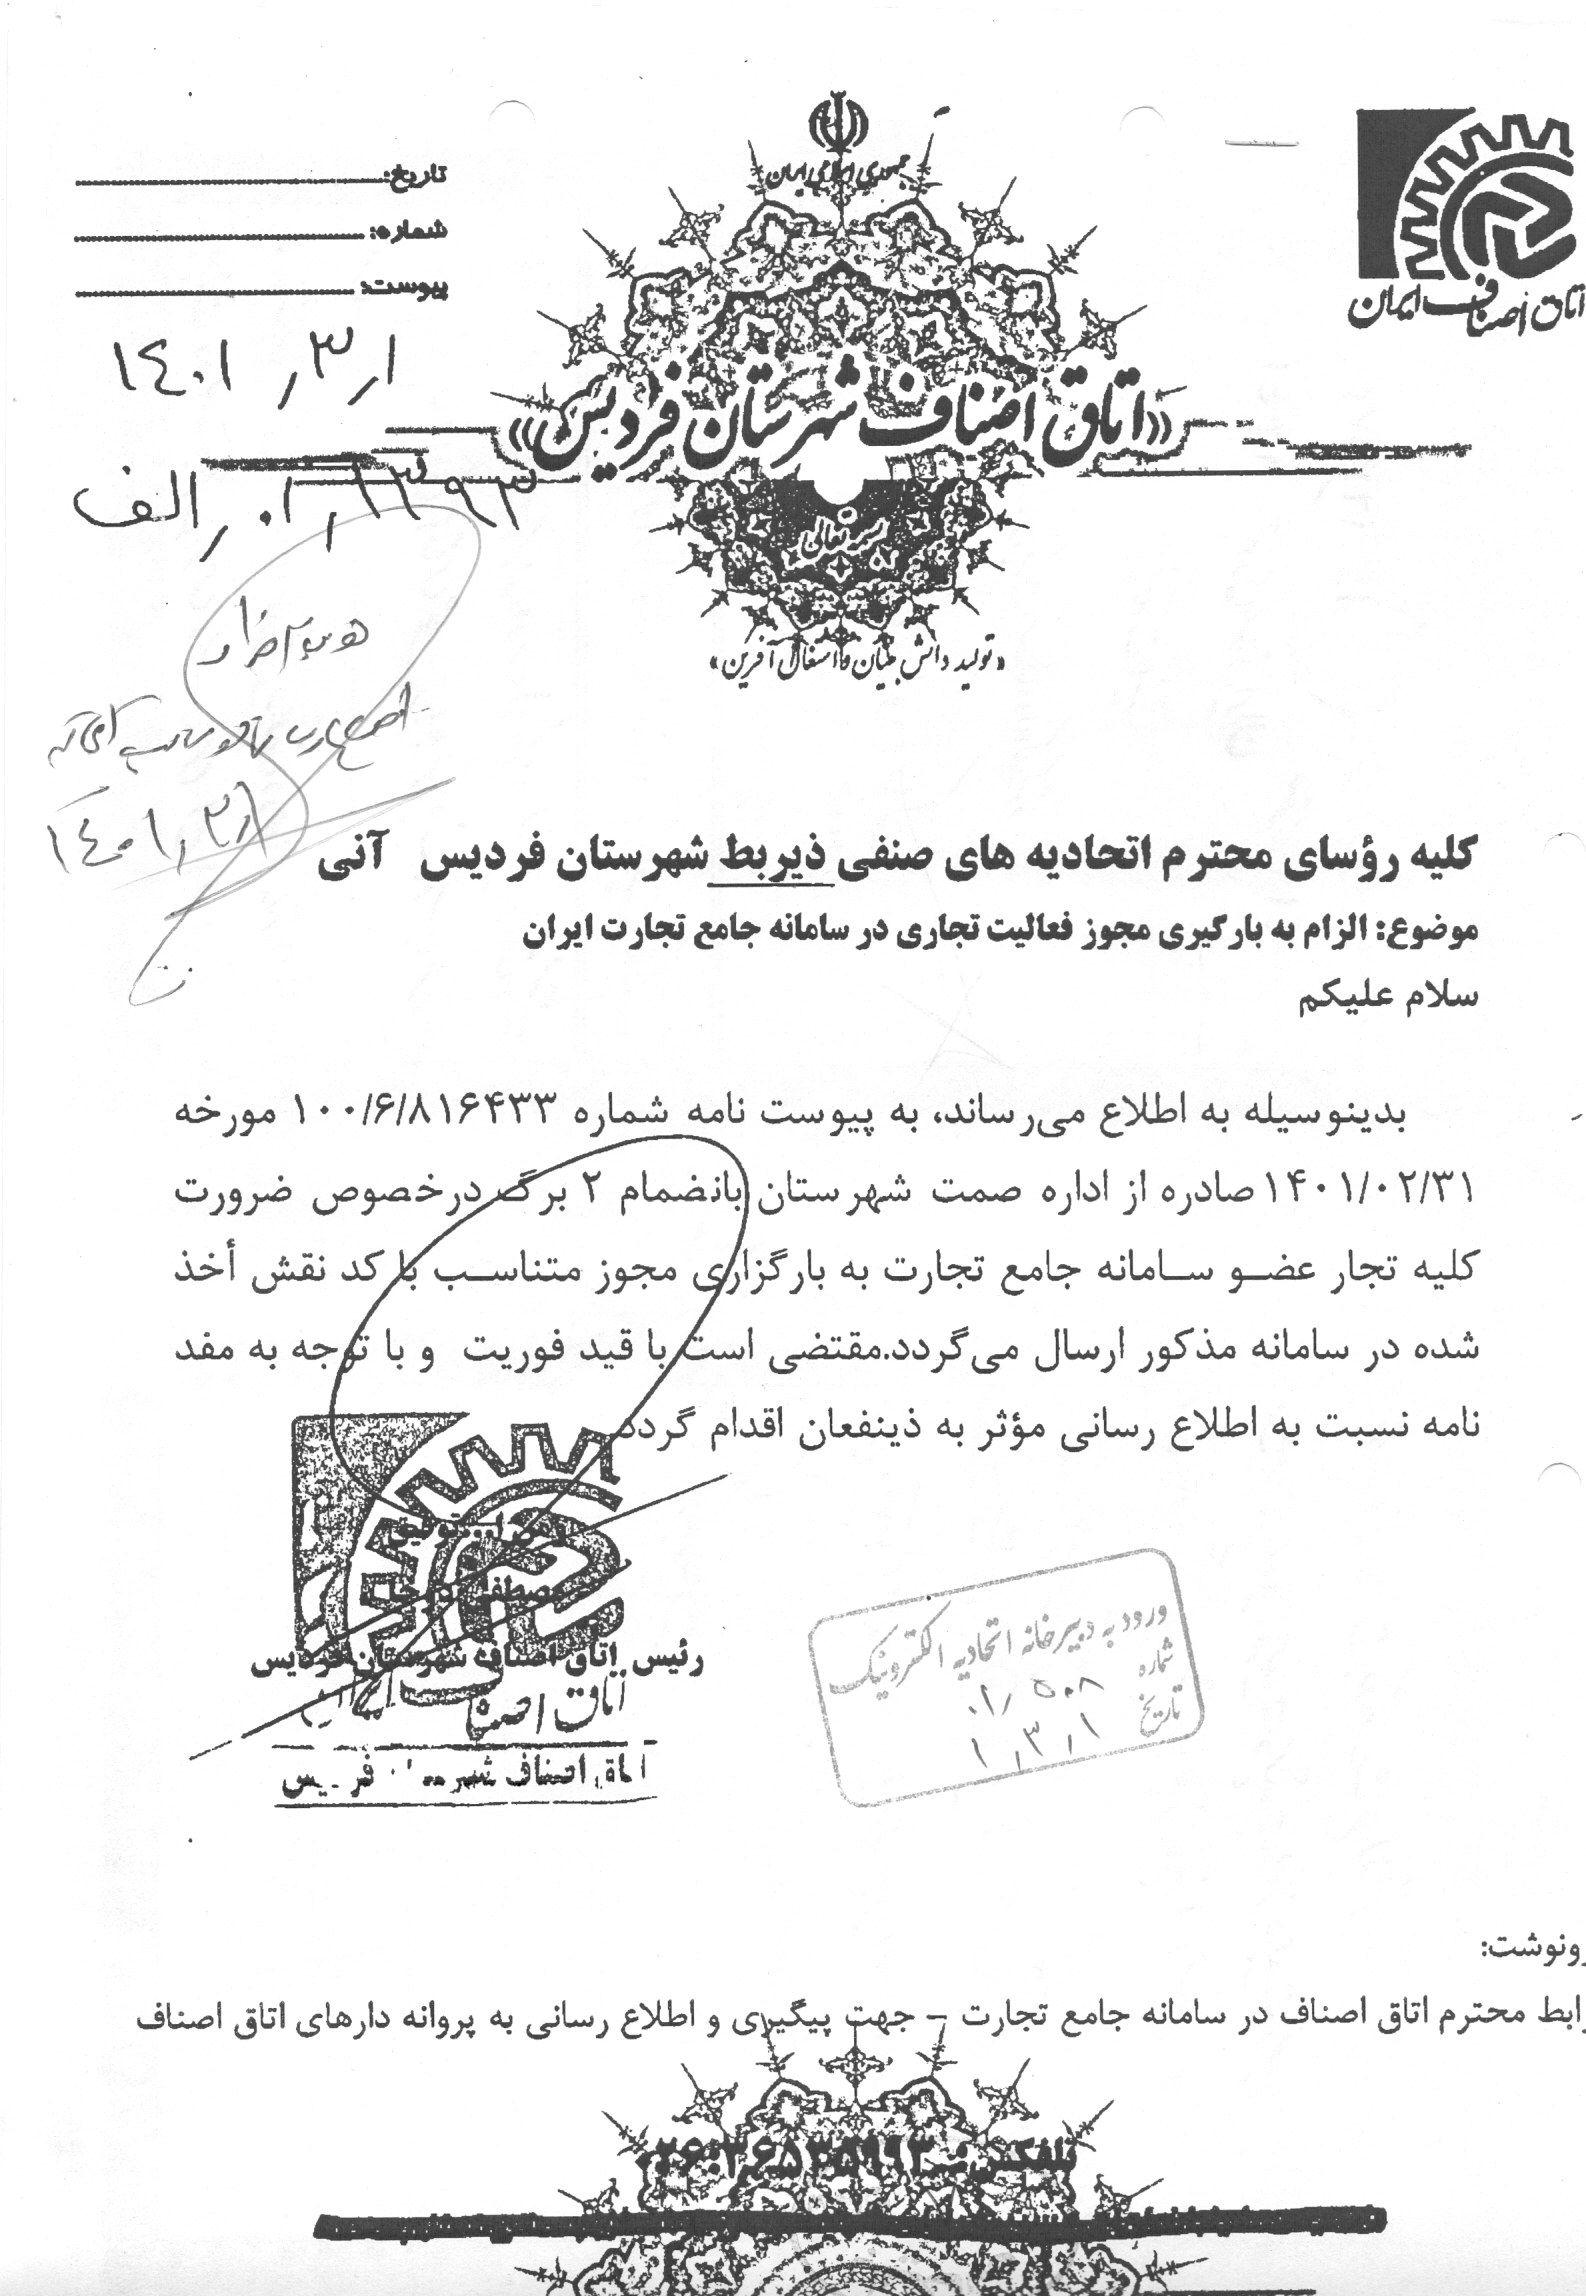 جمهوری اسلامی ایران
اتاق اصناف ایران
تاریخ:
شماره:
پیوست:
«اتاق اصناف شهرستان فردیس»
۱۴۰۱٫۳٫۱
الف٫۰۱٫۱۳۹۶۳
بسمه تعالی
«تولید دانش بنیان و اشتغال آفرین»
۱۴۰۱٫۳٫۱
کلیه رؤسای محترم اتحادیه های صنفی ذیربط شهرستان فردیس آنی
موضوع: الزام به بارگیری مجوز فعالیت تجاری در سامانه جامع تجارت ایران
سلام علیکم
بدینوسیله به اطلاع می‌رساند، به پیوست نامه شماره ۱۰۰/۶/۸۱۶۴۳۳ مورخه
۱۴۰۱/۰۲/۳۱ صادره از اداره صمت شهرستان بانضمام ۲ برگ درخصوص ضرورت
کلیه تجار عضو سامانه جامع تجارت به بارگزاری مجوز متناسب با کد نقش أخذ
شده در سامانه مذکور ارسال می‌گردد.مقتضی است با قید فوریت و با توجه به مفد
نامه نسبت به اطلاع رسانی مؤثر به ذینفعان اقدام گردد
رئیس اتاق اصناف شهرستان فردیس
اتاق اصناف ایران
اتاق اصناف شهرستان فردیس
ورود به دبیرخانه اتحادیه الکترونیک
شماره ۰۱٫۵۰۸
تاریخ ۱٫۳٫۱
رونوشت:
رابط محترم اتاق اصناف در سامانه جامع تجارت – جهت پیگیری و اطلاع رسانی به پروانه دارهای اتاق اصناف